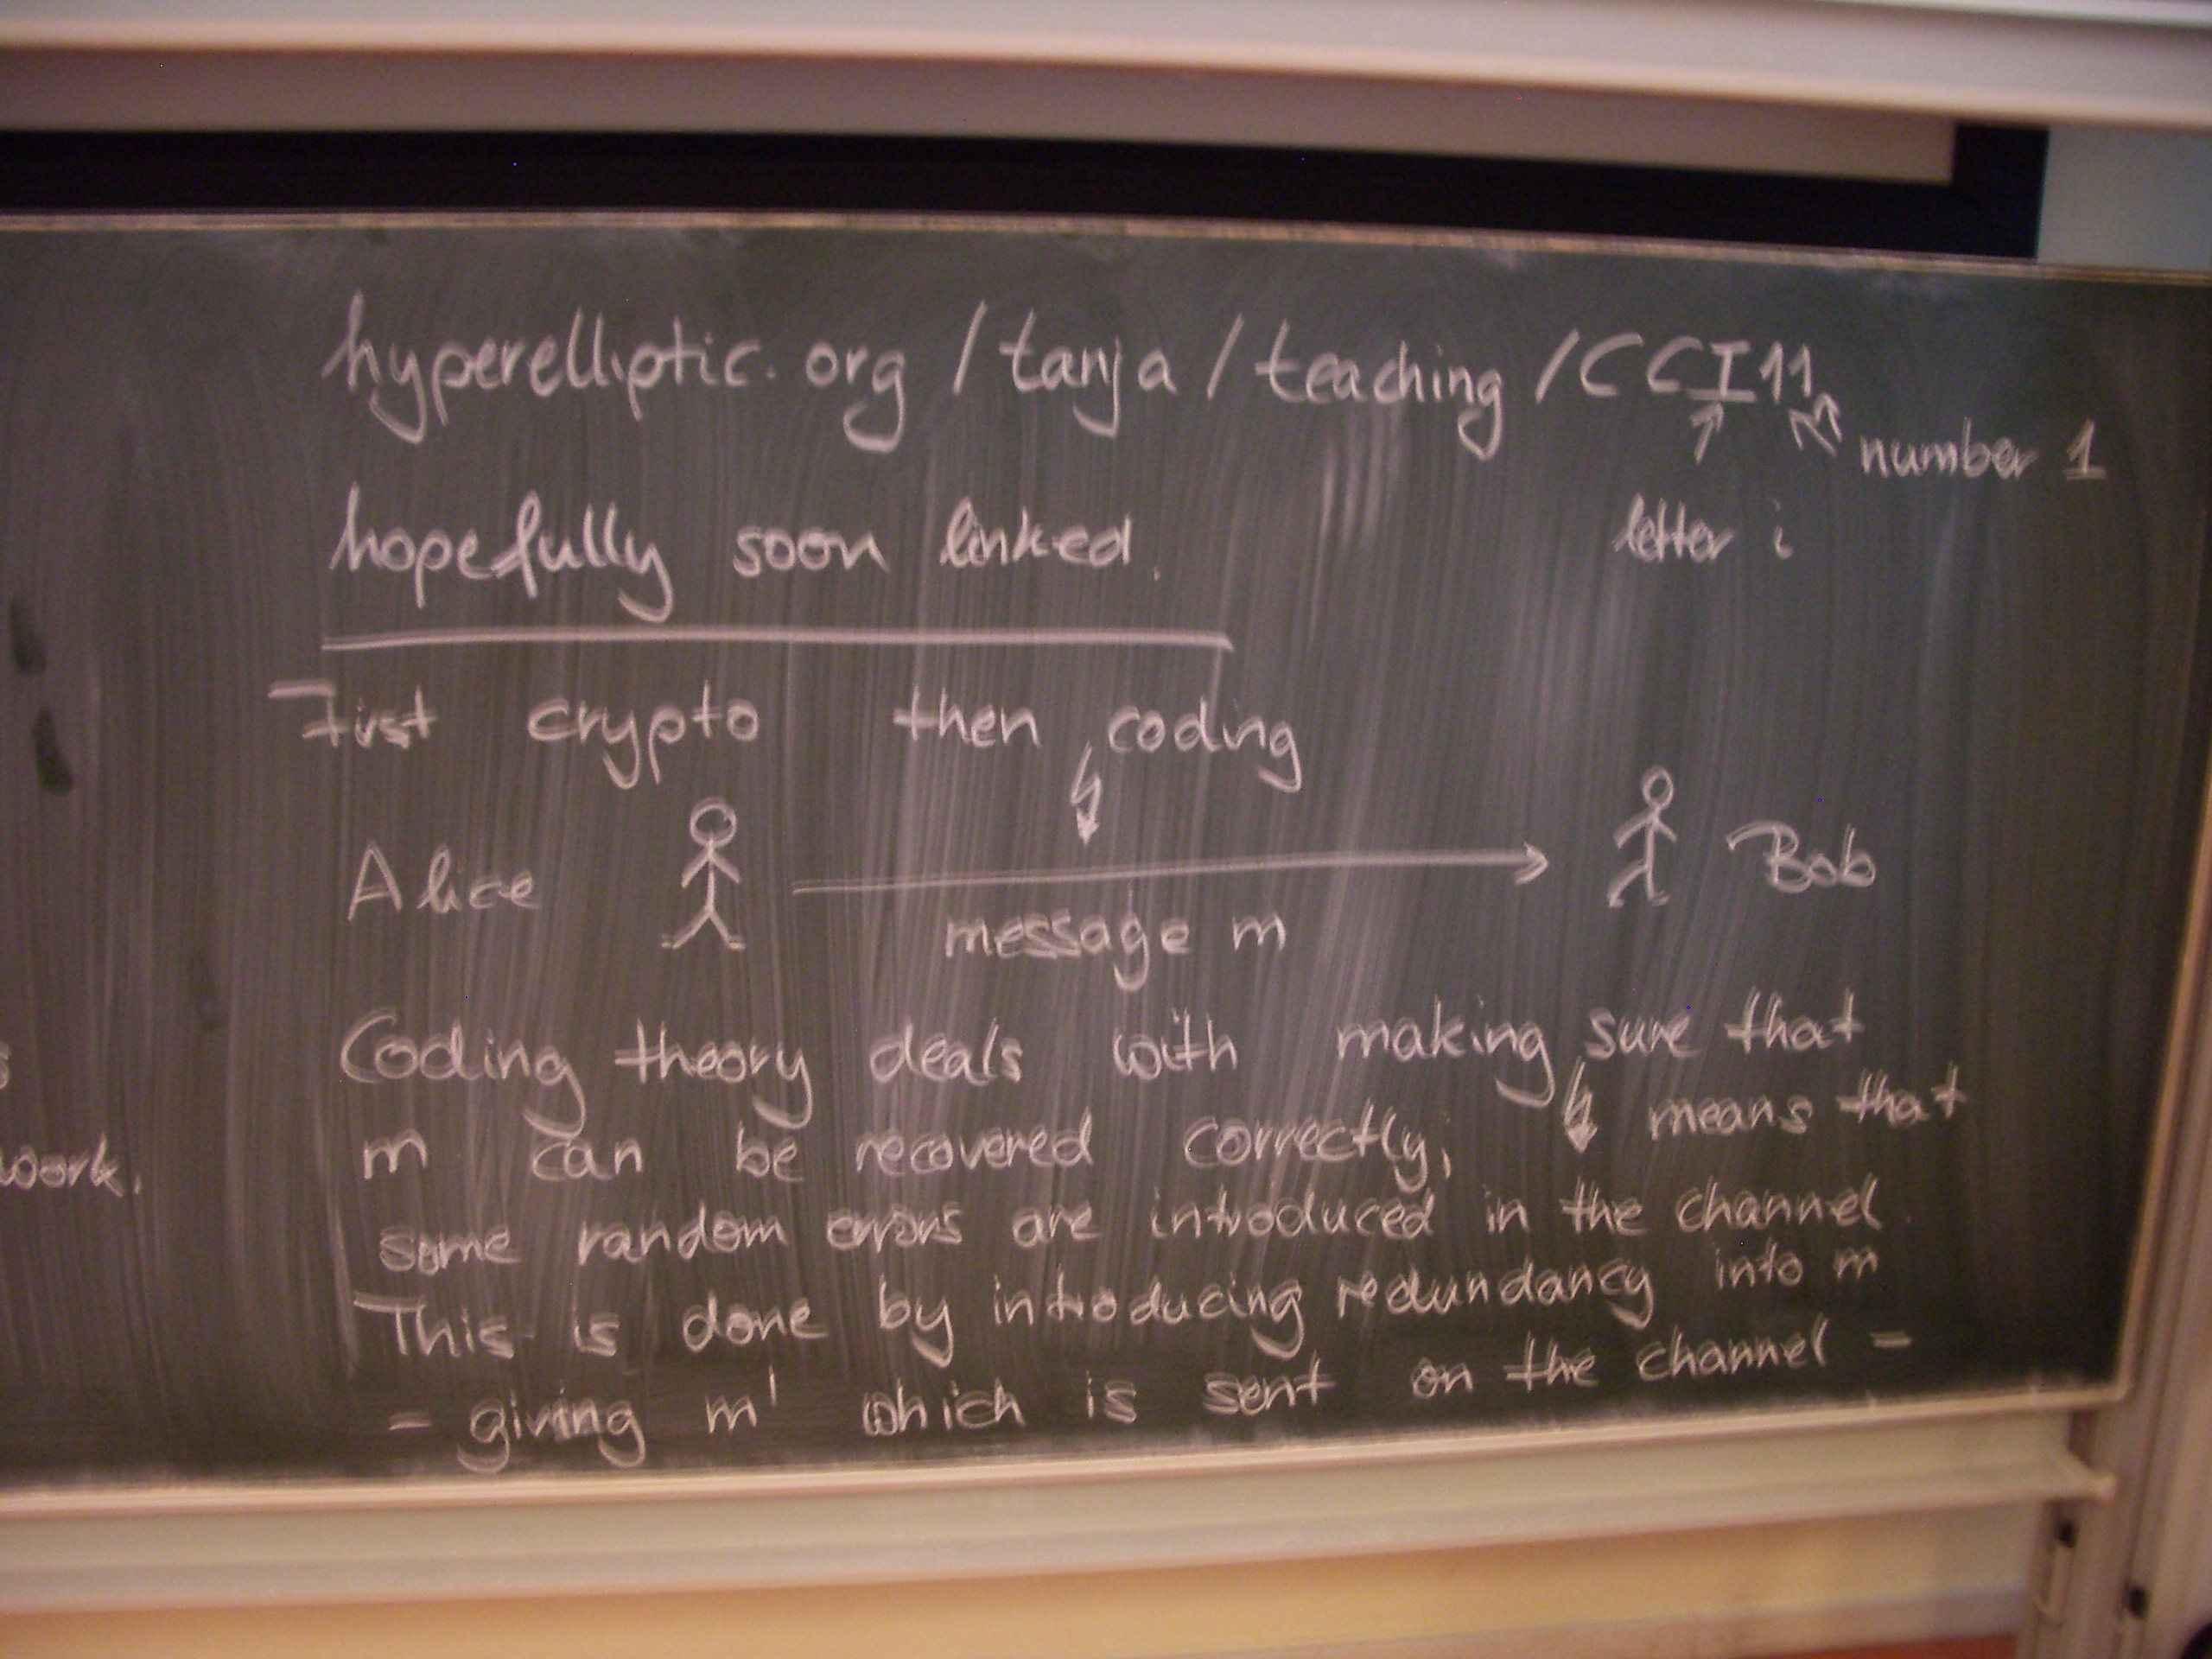 hyperelliptic.org/tanja/teaching/CCI11
number 1
letter i
hopefully soon linked.
First crypto then coding
Alice
Bob
message m
Coding theory deals with making sure that
m can be recovered correctly; ↯ means that
some random errors are introduced in the channel.
This is done by introducing redundancy into m
- giving m' which is sent on the channel -
work.